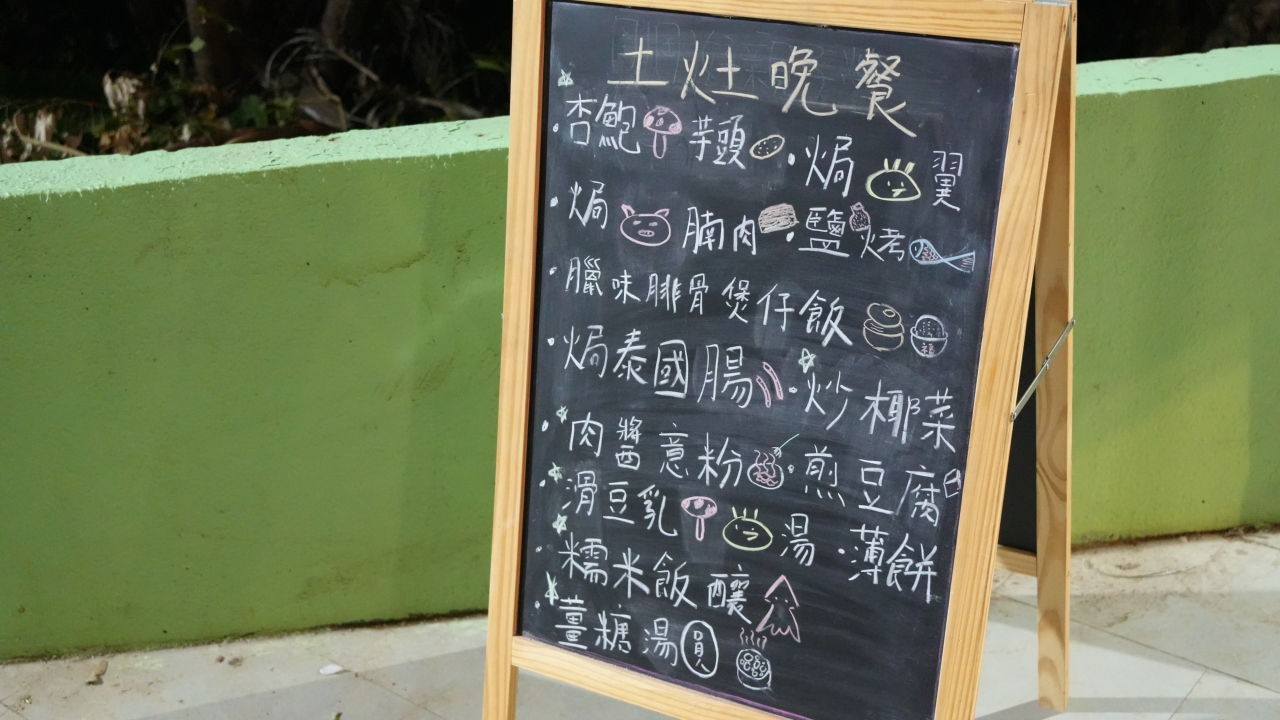 土灶晚餐
·杏鮑 芋頭 ·焗 翼
·焗 腩肉 ·鹽烤
·臘味腓骨煲仔飯
·焗泰國腸 ·炒椰菜
·肉醬意粉 ·煎豆腐
·滑豆乳 湯 ·薄餅
·糯米飯釀
·薑糖湯圓